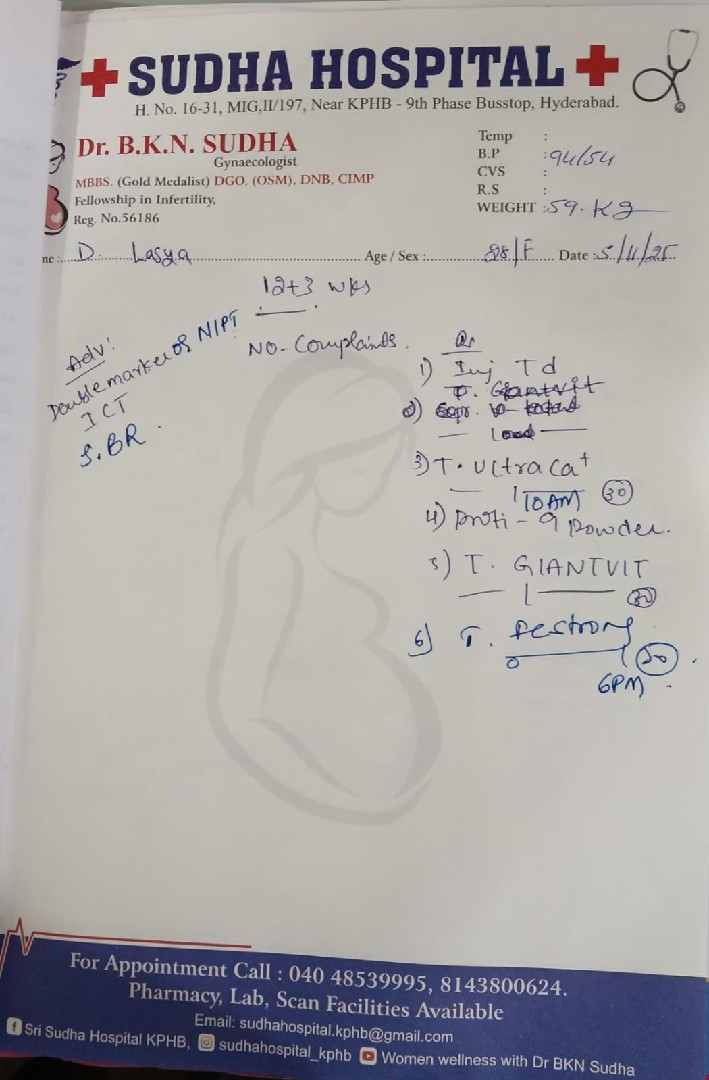 SUDHA HOSPITAL
H. No. 16-31, MIG,II/197, Near KPHB - 9th Phase Busstop, Hyderabad.
Dr. B.K.N. SUDHA
Gynaecologist
MBBS. (Gold Medalist) DGO, (OSM), DNB, CIMP
Fellowship in Infertility,
Reg. No.56186
Temp :
B.P : 94/54
CVS :
R.S :
WEIGHT : 59. Kg
me : D. Lasya Age / Sex : 28/F Date : 5/11/25
12+3 wks
NO-Complaints.
Adv:
Double marker or NIPT
ICT
S.BR.
1) Inj Td
T. Giantvit
2)
3) T. Ultra Ca+
1 10AM 30
4) Proti-9 Powder.
5) T. GIANTVIT
1 30
6) T. festrong
0 1 30
6PM
For Appointment Call : 040 48539995, 8143800624.
Pharmacy, Lab, Scan Facilities Available
Email: sudhahospital.kphb@gmail.com
Sri Sudha Hospital KPHB, sudhahospital_kphb Women wellness with Dr BKN Sudha